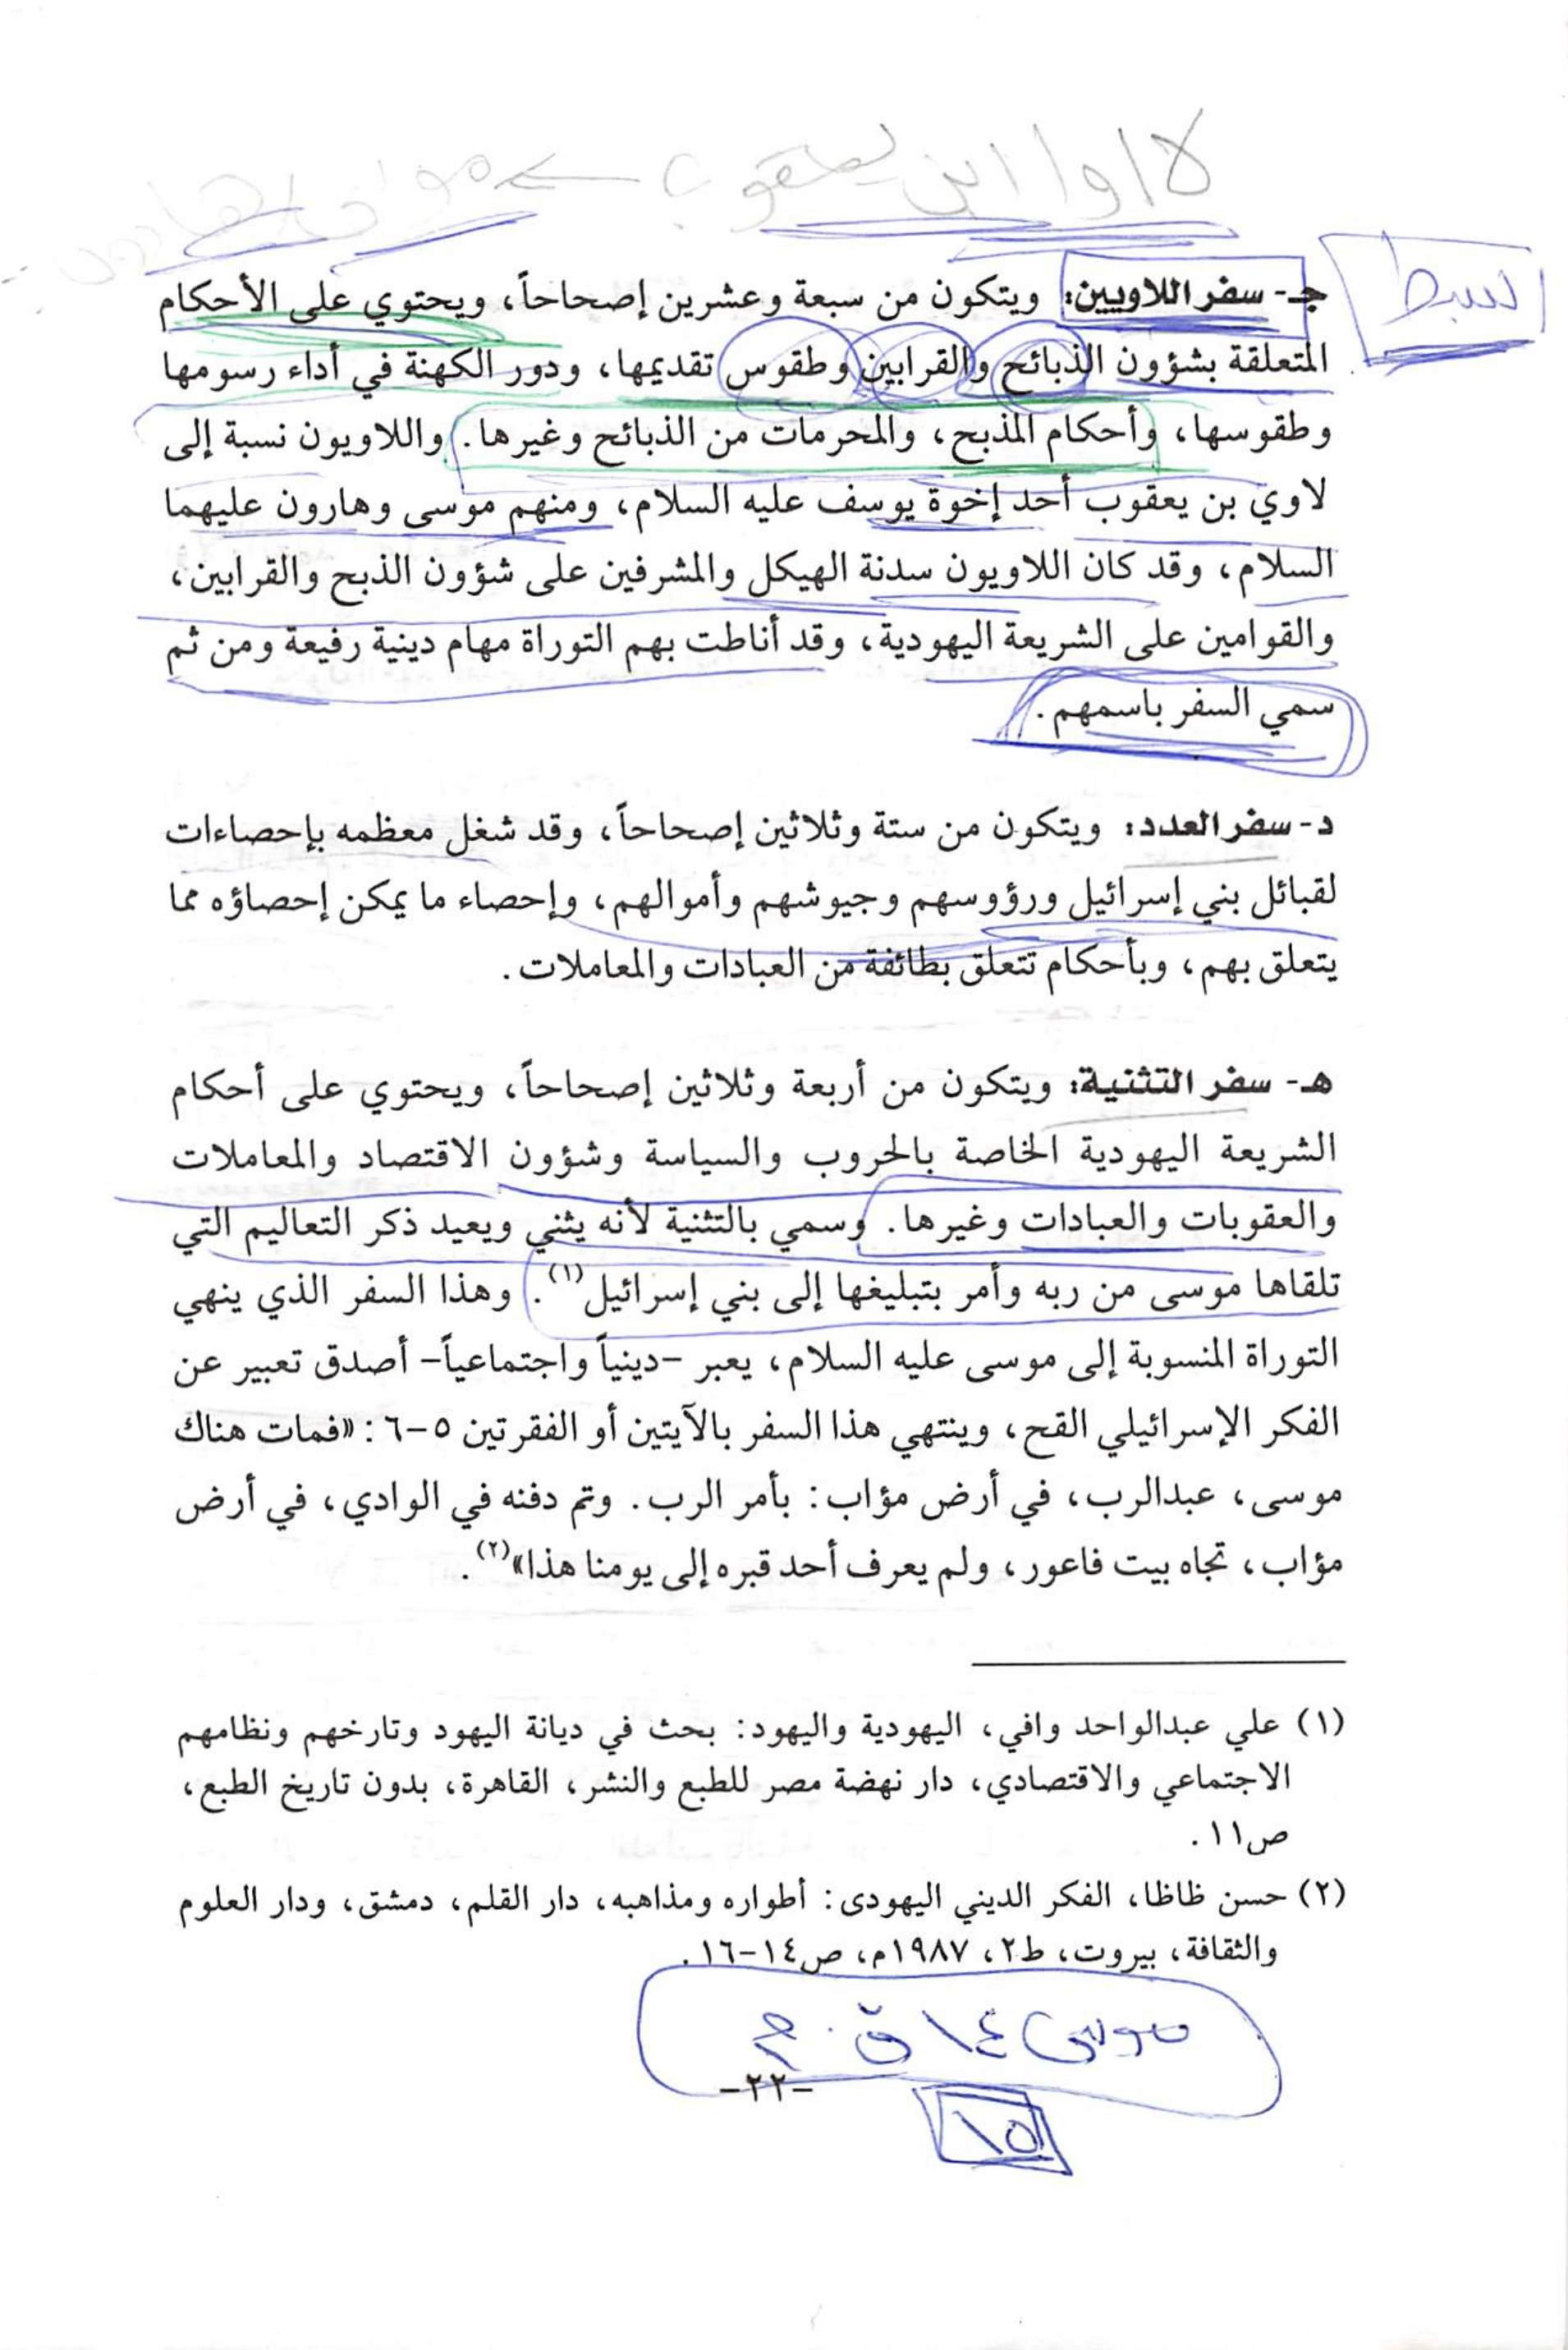 لاوا ابن يعقوب
السبط
جـ- سفر اللاويين: ويتكون من سبعة وعشرين إصحاحاً، ويحتوي على الأحكام
المتعلقة بشؤون الذبائح والقرابين وطقوس تقديمها، ودور الكهنة في أداء رسومها
وطقوسها، وأحكام المذبح، والمحرمات من الذبائح وغيرها. واللاويون نسبة إلى
لاوي بن يعقوب أحد إخوة يوسف عليه السلام، ومنهم موسى وهارون عليهما
السلام، وقد كان اللاويون سدنة الهيكل والمشرفين على شؤون الذبح والقرابين،
والقوامين على الشريعة اليهودية، وقد أناطت بهم التوراة مهام دينية رفيعة ومن ثم
سمي السفر باسمهم.
د- سفر العدد: ويتكون من ستة وثلاثين إصحاحاً، وقد شغل معظمه بإحصاءات
لقبائل بني إسرائيل ورؤوسهم وجيوشهم وأموالهم، وإحصاء ما يمكن إحصاؤه مما
يتعلق بهم، وبأحكام تتعلق بطائفة من العبادات والمعاملات.
هـ- سفر التثنية: ويتكون من أربعة وثلاثين إصحاحاً، ويحتوي على أحكام
الشريعة اليهودية الخاصة بالحروب والسياسة وشؤون الاقتصاد والمعاملات
والعقوبات والعبادات وغيرها. وسمي بالتثنية لأنه يثني ويعيد ذكر التعاليم التي
تلقاها موسى من ربه وأمر بتبليغها إلى بني إسرائيل(١). وهذا السفر الذي ينهي
التوراة المنسوبة إلى موسى عليه السلام، يعبر -دينياً واجتماعياً- أصدق تعبير عن
الفكر الإسرائيلي القح، وينتهي هذا السفر بالآيتين أو الفقرتين ٥-٦: «فمات هناك
موسى، عبدالرب، في أرض مؤاب: بأمر الرب. وتم دفنه في الوادي، في أرض
مؤاب، تجاه بيت فاعور، ولم يعرف أحد قبره إلى يومنا هذا»(٢).
(١) علي عبدالواحد وافي، اليهودية واليهود: بحث في ديانة اليهود وتارخهم ونظامهم
الاجتماعي والاقتصادي، دار نهضة مصر للطبع والنشر، القاهرة، بدون تاريخ الطبع،
ص١١.
(٢) حسن ظاظا، الفكر الديني اليهودى: أطواره ومذاهبه، دار القلم، دمشق، ودار العلوم
والثقافة، بيروت، ط٢، ١٩٨٧م، ص١٤-١٦.
موسى ١٤ ق.م
-٢٢-
١٥